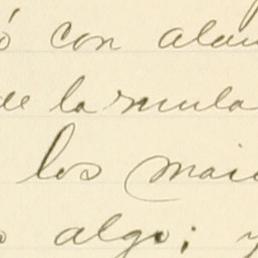 ó con alam
de la mula
los mai
algo; y